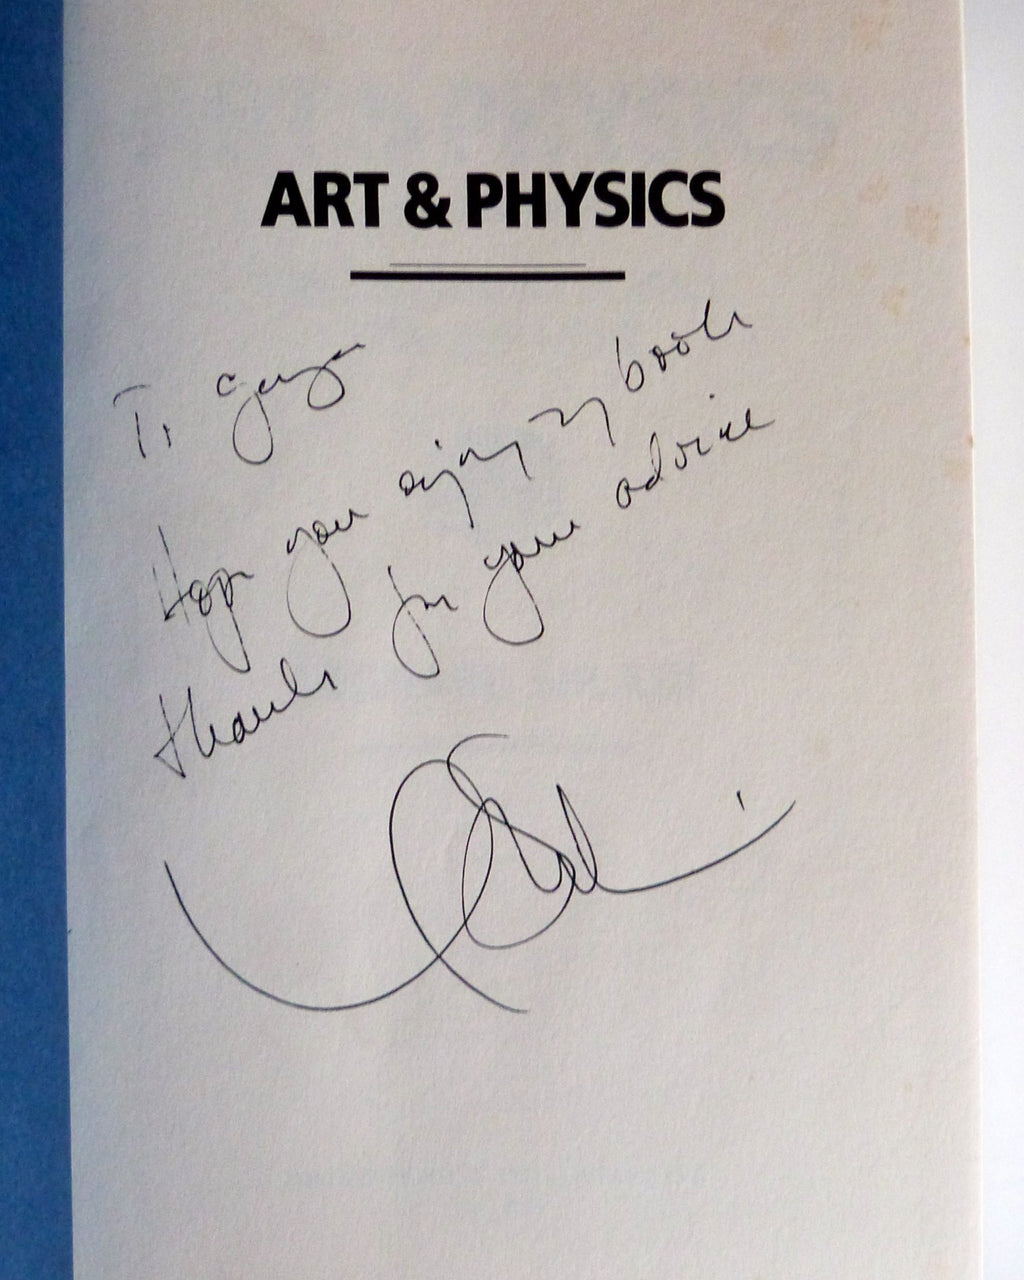 ART & PHYSICS
To George
Hope you enjoy my book
thanks for your advice